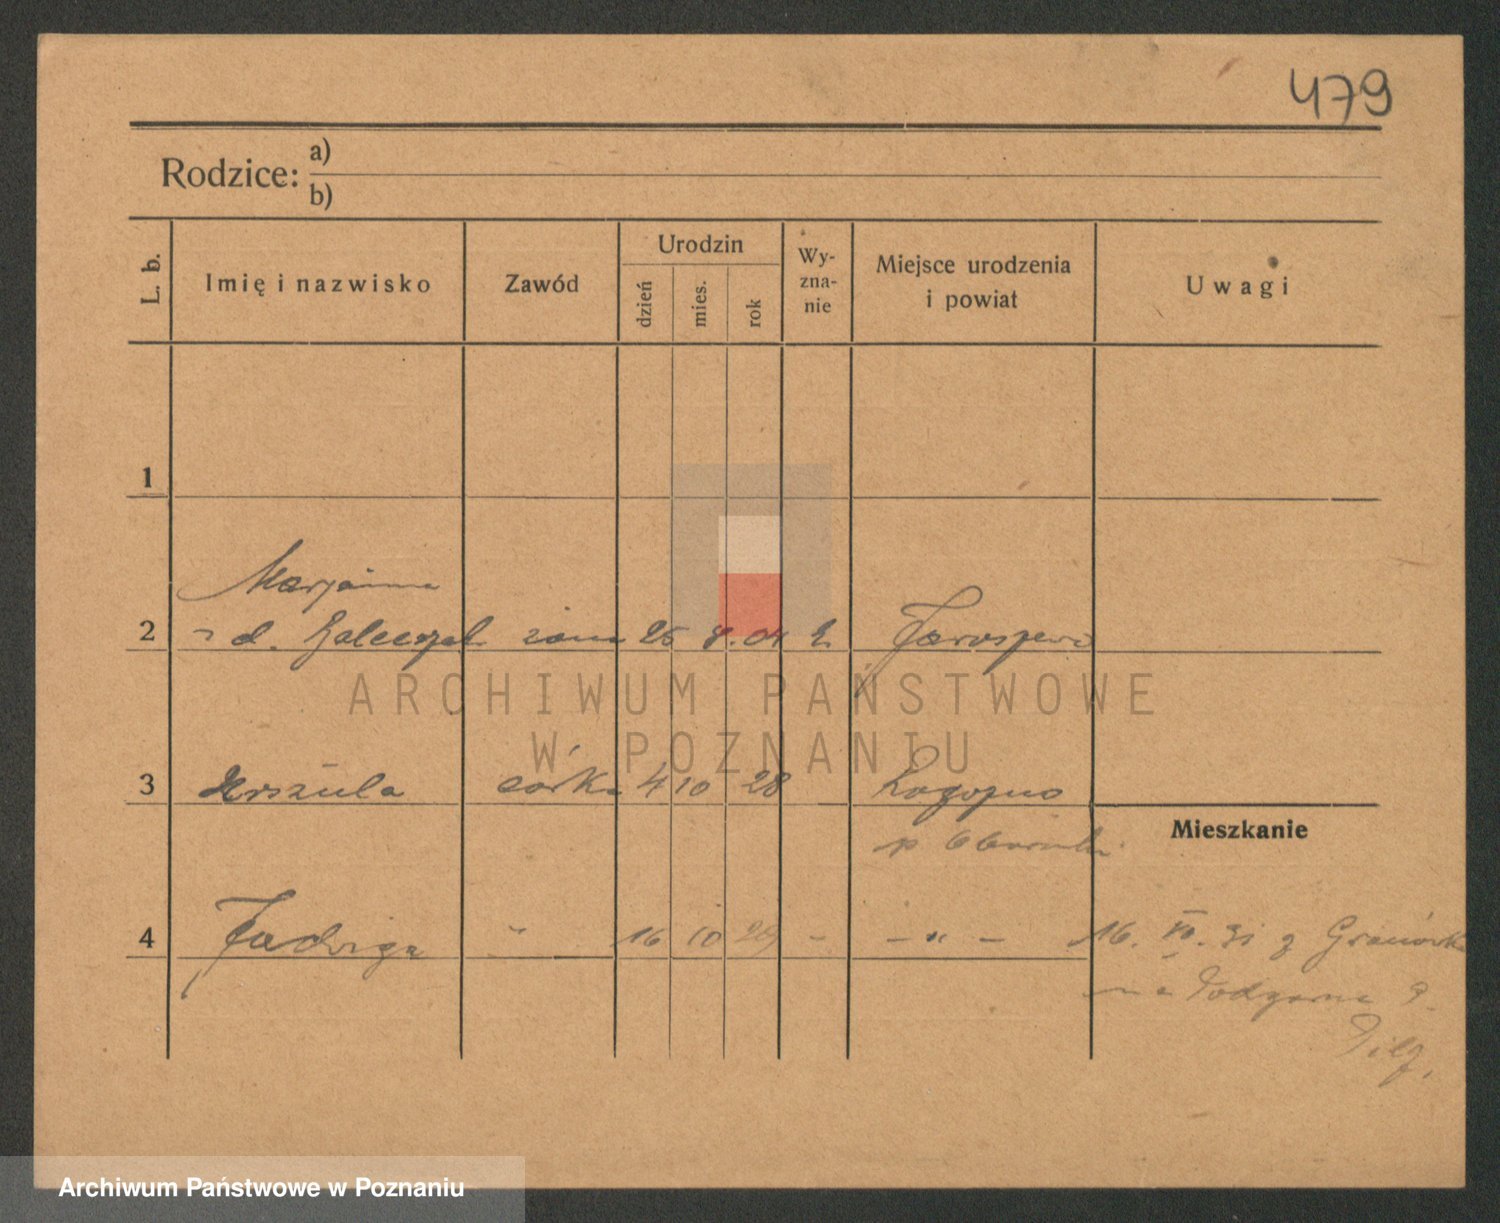 479
Rodzice: a)
b)
L. b.
Imię i nazwisko
Zawód
Urodzin
dzień
mies.
rok
Wy-
zna-
nie
Miejsce urodzenia
i powiat
Uwagi
1
Marjanna
2 z d. żona 25 8. 04
3 Urszula córka 4 10 28 Rogoźno
p Oborniki
Mieszkanie
4 Jadwiga " 16 10 29 - - " - 16. VII. 31 z Granówka
na Podgórna
ARCHIWUM PAŃSTWOWE
W POZNANIU
Archiwum Państwowe w Poznaniu